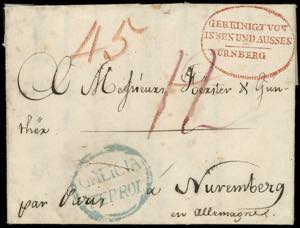 45
GEREINIGT VON
INNEN UND AUSSEN
NÜRNBERG
A Messieurs Förster & Gun-
ther
12
GALICIA
FERROL
par Paris à Nuremberg
en Allemagne.